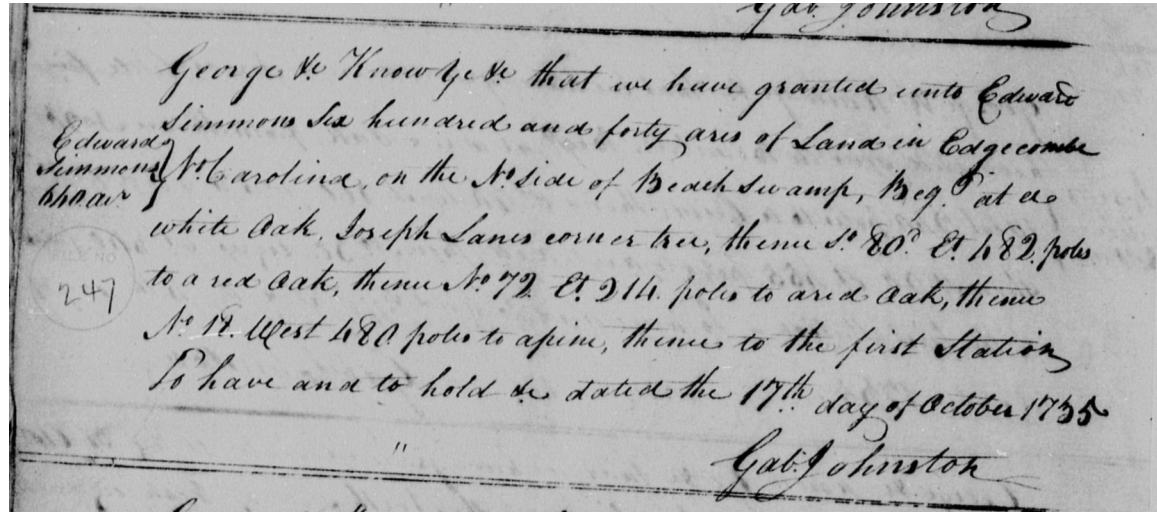 Gab. Johnston
George &c Know Ye &c that we have granted unto Edward
Simmons Six hundred and forty acres of Land in Edgecombe
Edward
Simmons
640 acr
No Carolina, on the No side of Beach Swamp, Beg.g at a
white Oak Joseph Lanes corner tree, thence So 80d Et. 482 poles
FILE NO
247
to a red Oak, thence No 72 Et. 214. poles to a red Oak, thence
No 18. West 480 poles to a pine, thence to the first Station
To have and to hold &c dated the 17th day of October 1735
"
Gab. Johnston